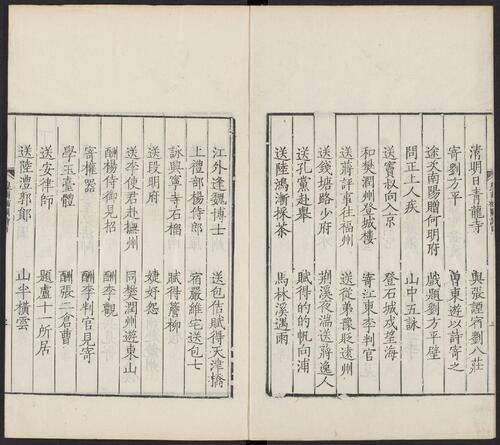 清明日青龍寺　與張諲宿劉八莊
寄劉方平　曾東遊以詩寄之
途次南陽贈何明府　戲題劉方平壁
問正上人疾　山中五詠
送竇叔向入京　登石城戍望海
和樊潤州登城樓　寄江東李判官
送蔣評事往福州　送從弟豫貶遠州
送錢塘路少府　荊溪夜湍送蔣逸人
送孔黨赴舉　賦得的的帆向浦
送陸鴻漸採茶　馬林溪遇雨
江外逢魏博士　送包佶賦得天津橋
上禮部楊侍郎　宿嚴維宅送包七
詠興寧寺石榴　賦得簷柳
送段明府　婕妤怨
送李使君赴撫州　同樊潤州遊東山
酬楊侍御見招　酬李觀
寄權器　酬李判官見寄
學玉臺體　酬張二倉曹
送安律師　題盧十一所居
送陸澧郭鄖　山半橫雲